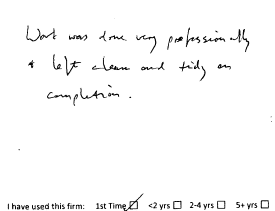 Work was done very professionally
& left clean and tidy on
completion.
I have used this firm: 1st Time ☑ <2 yrs ☐ 2-4 yrs ☐ 5+ yrs ☐